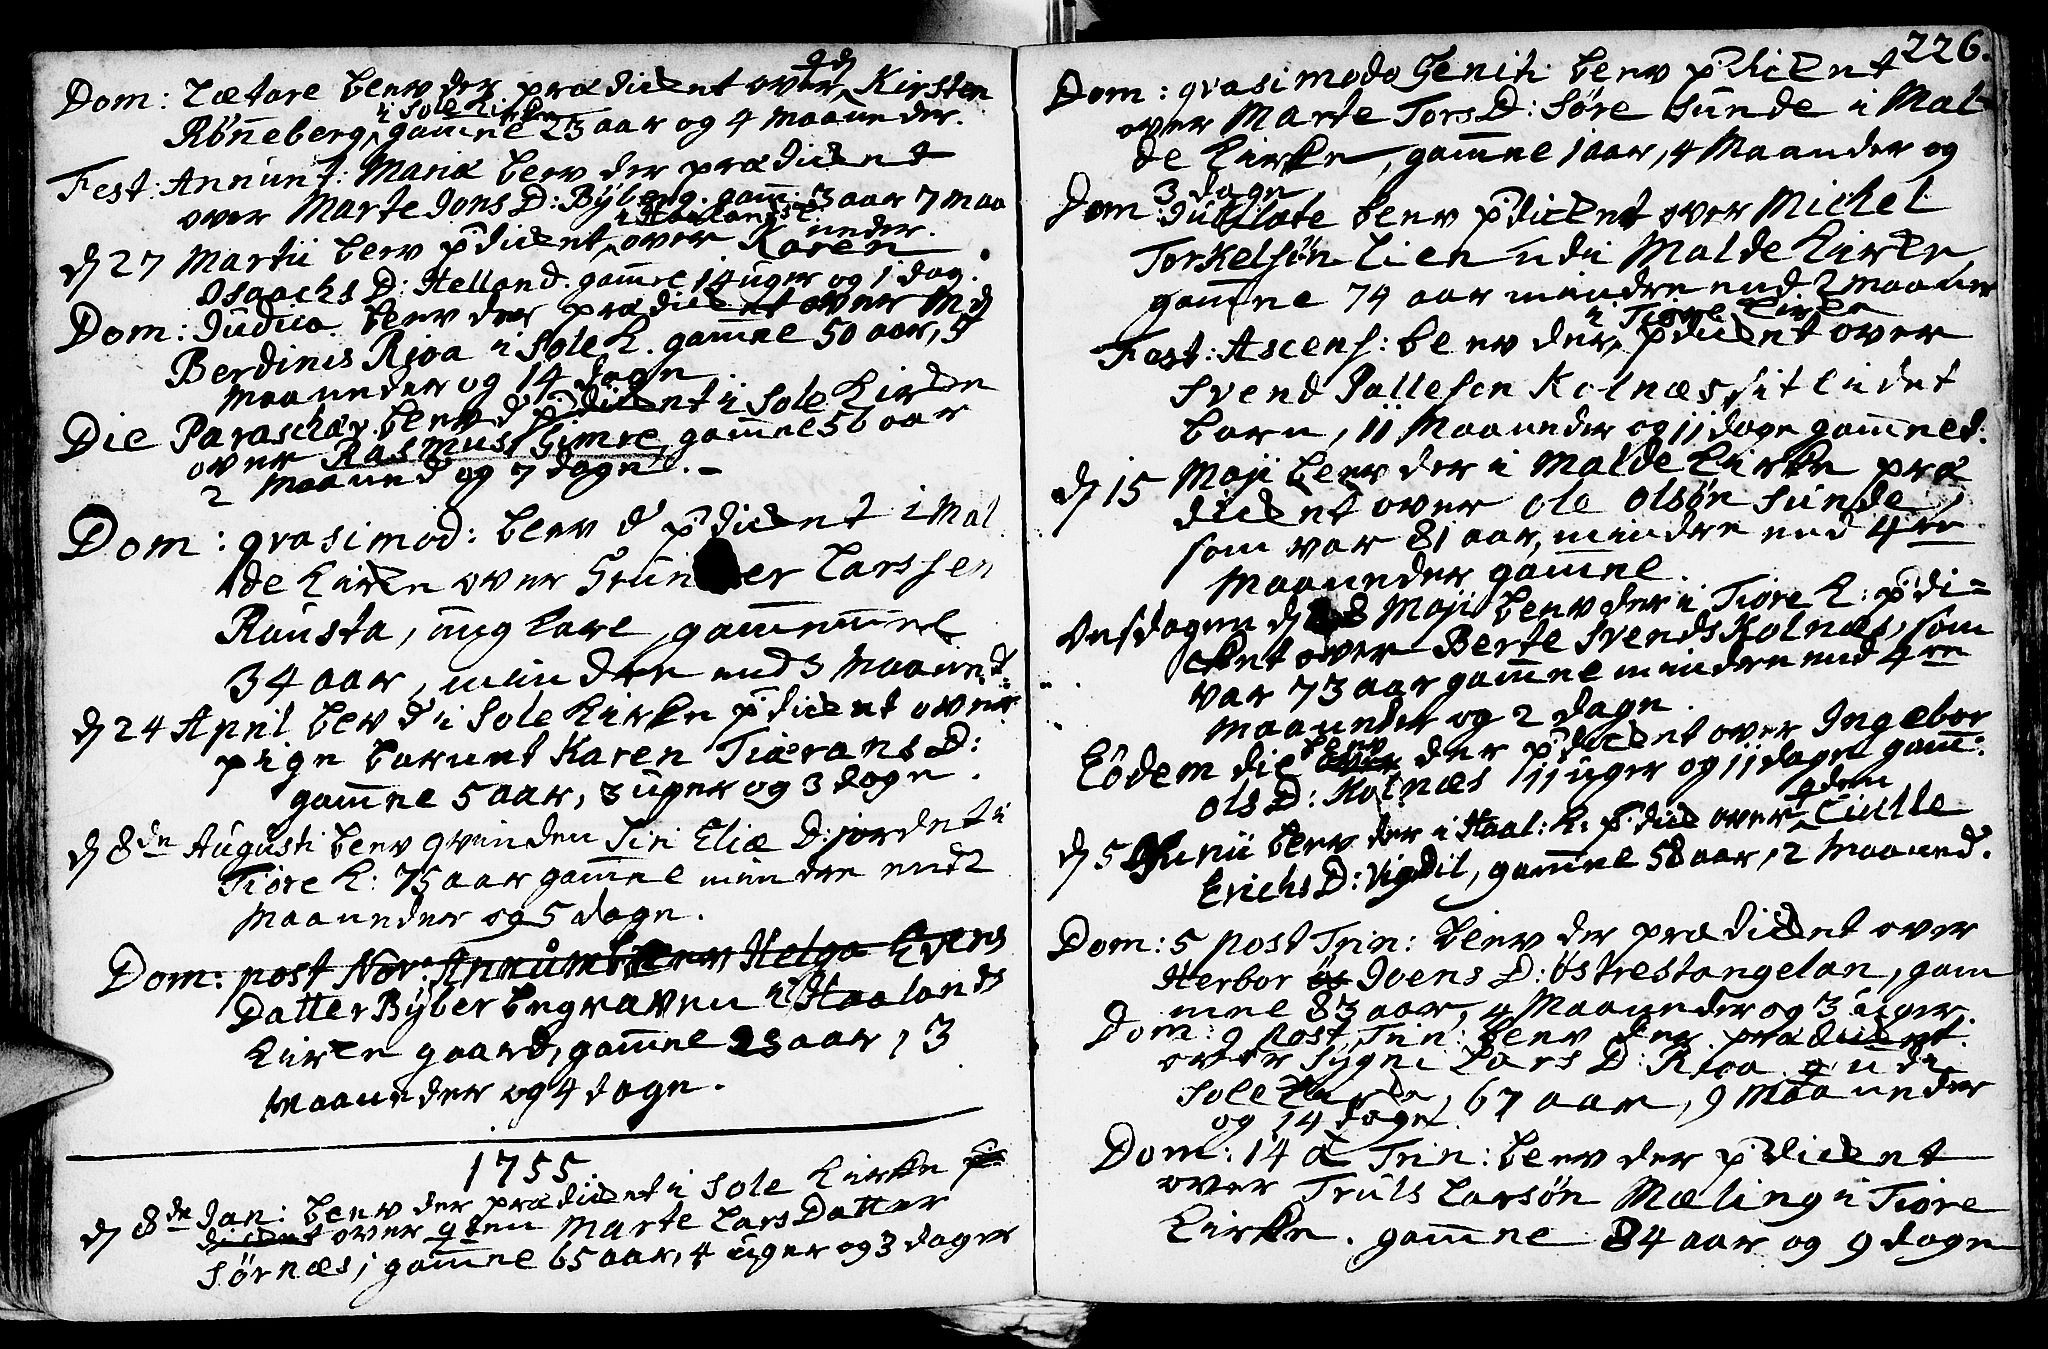 Dom: Lætare blev der prædicket over qd Kirsten
Rønneberg i Sole Kirke gamme 23 aar og 4 maaneder.
Fest: Annunt: Mariæ blev der prædicket
over Marte Jons D: Byberg. gam: 3 aar 7 maa
neder.
d 27 Martii blev pdicket over Karen
Isaachs D: Helland. gamel 14 uger og 1 dag.
Dom: Judica blev der prædicket over Md
Berdinis Rjoa i Sole K. gamel 50 aar, 5
maaneder og 14 dage
Die Parascev. blev d pdicket i Sole Kirke
over Rasmus Gimre, gamel 56 aar
2 maaned og 7 dage. –
Dom: qvasimod: blev d pdicket i Mal
de Kirke over Gunder Larssen
Rousta, ung karl, gammel
34 aar, mindre end 3 Maaned:
d 24 April blev d i Sole Kirke pdicket over
pige barnet Karen Tiærans D:
gamel 5 aar, 3 uger og 3 dage.
d 8de Augusti blev qvinden Siri Eliæ D: jordet i
Tiore K: 75 aar gamel mindre end 2
Maaneder og 5 dage.
Dom: post Nov: Annum blev Helga Evens
Datter Byber begraven i Haalands
Kirke gaard, gamel 23 aar, 3
Maaneder og 4 dage.
1755
d 8de Jan: blev der prædicket i Sole Kirke p
dicket over qden Marte Lars Datter
Sørnæs, gamel 65 aar, 4 uger og 3 dager
226.
Dom: qvasimodo Geniti blev pdicket
over Marte Tors D: Søre Sunde i Mal
de Kirke, gamel 1 aar, 4 Maander og
3 dage
Dom Jubilate blev pdicket over Michel
Torkelsøn Lien udi Malde Kirke
gamel 74 aar mindre end 2 maaner
Fest: Ascens: blev der i Tiore Kirke pdicket over
Svend Pallesen Kolnæs sit lidet
barn, 11 Maaneder og 11 dage gammel.
d 15 Maji blev der i Malde Kirke præ
dicket over Ole Olsøn Sunde,
som var 81 aar, mindre end 4re
Maaneder gamel.
Onsdagen d 28 Maji blev der i Tiore K: pdi=
cket over Berte Svends Kolnæs, som
var 73 aar gamel mindre end 4re
Maaneder og 2 dage.
Eodem die blev der pdicket over Ingebor
Ols D: Kolnæs 11 uger og 11 dage gam:
d 5 Junii blev der i Haal: K: pdic over qden Lisille
Erichs D: Vigdel, gamel 58 aar, 2 Maaned.
Dom: 5 post Trin: blev der prædicket over
Herbor Joens D: Østrestangeland, gam
mel 83 aar, 4 Maaneder og 3 uger.
Dom: 9 post Trin: blev der prædicket
over Sygni Lars D: Rjoa udi
Sole Kirke, 67 aar, 9 Maaneder
og 14 dage.
Dom: 14 à Trin: blev der pdicket
over Truls Larsøn Mæling i Tiore
Kirke. gamel 84 aar og 9 dage